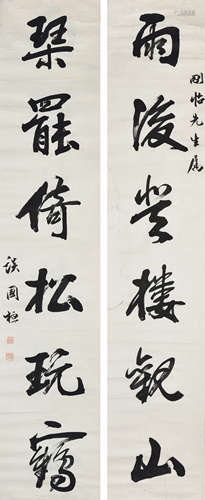 剛怡先生属
雨後登樓觀山
琹罷倚松玩鶴
談國桓